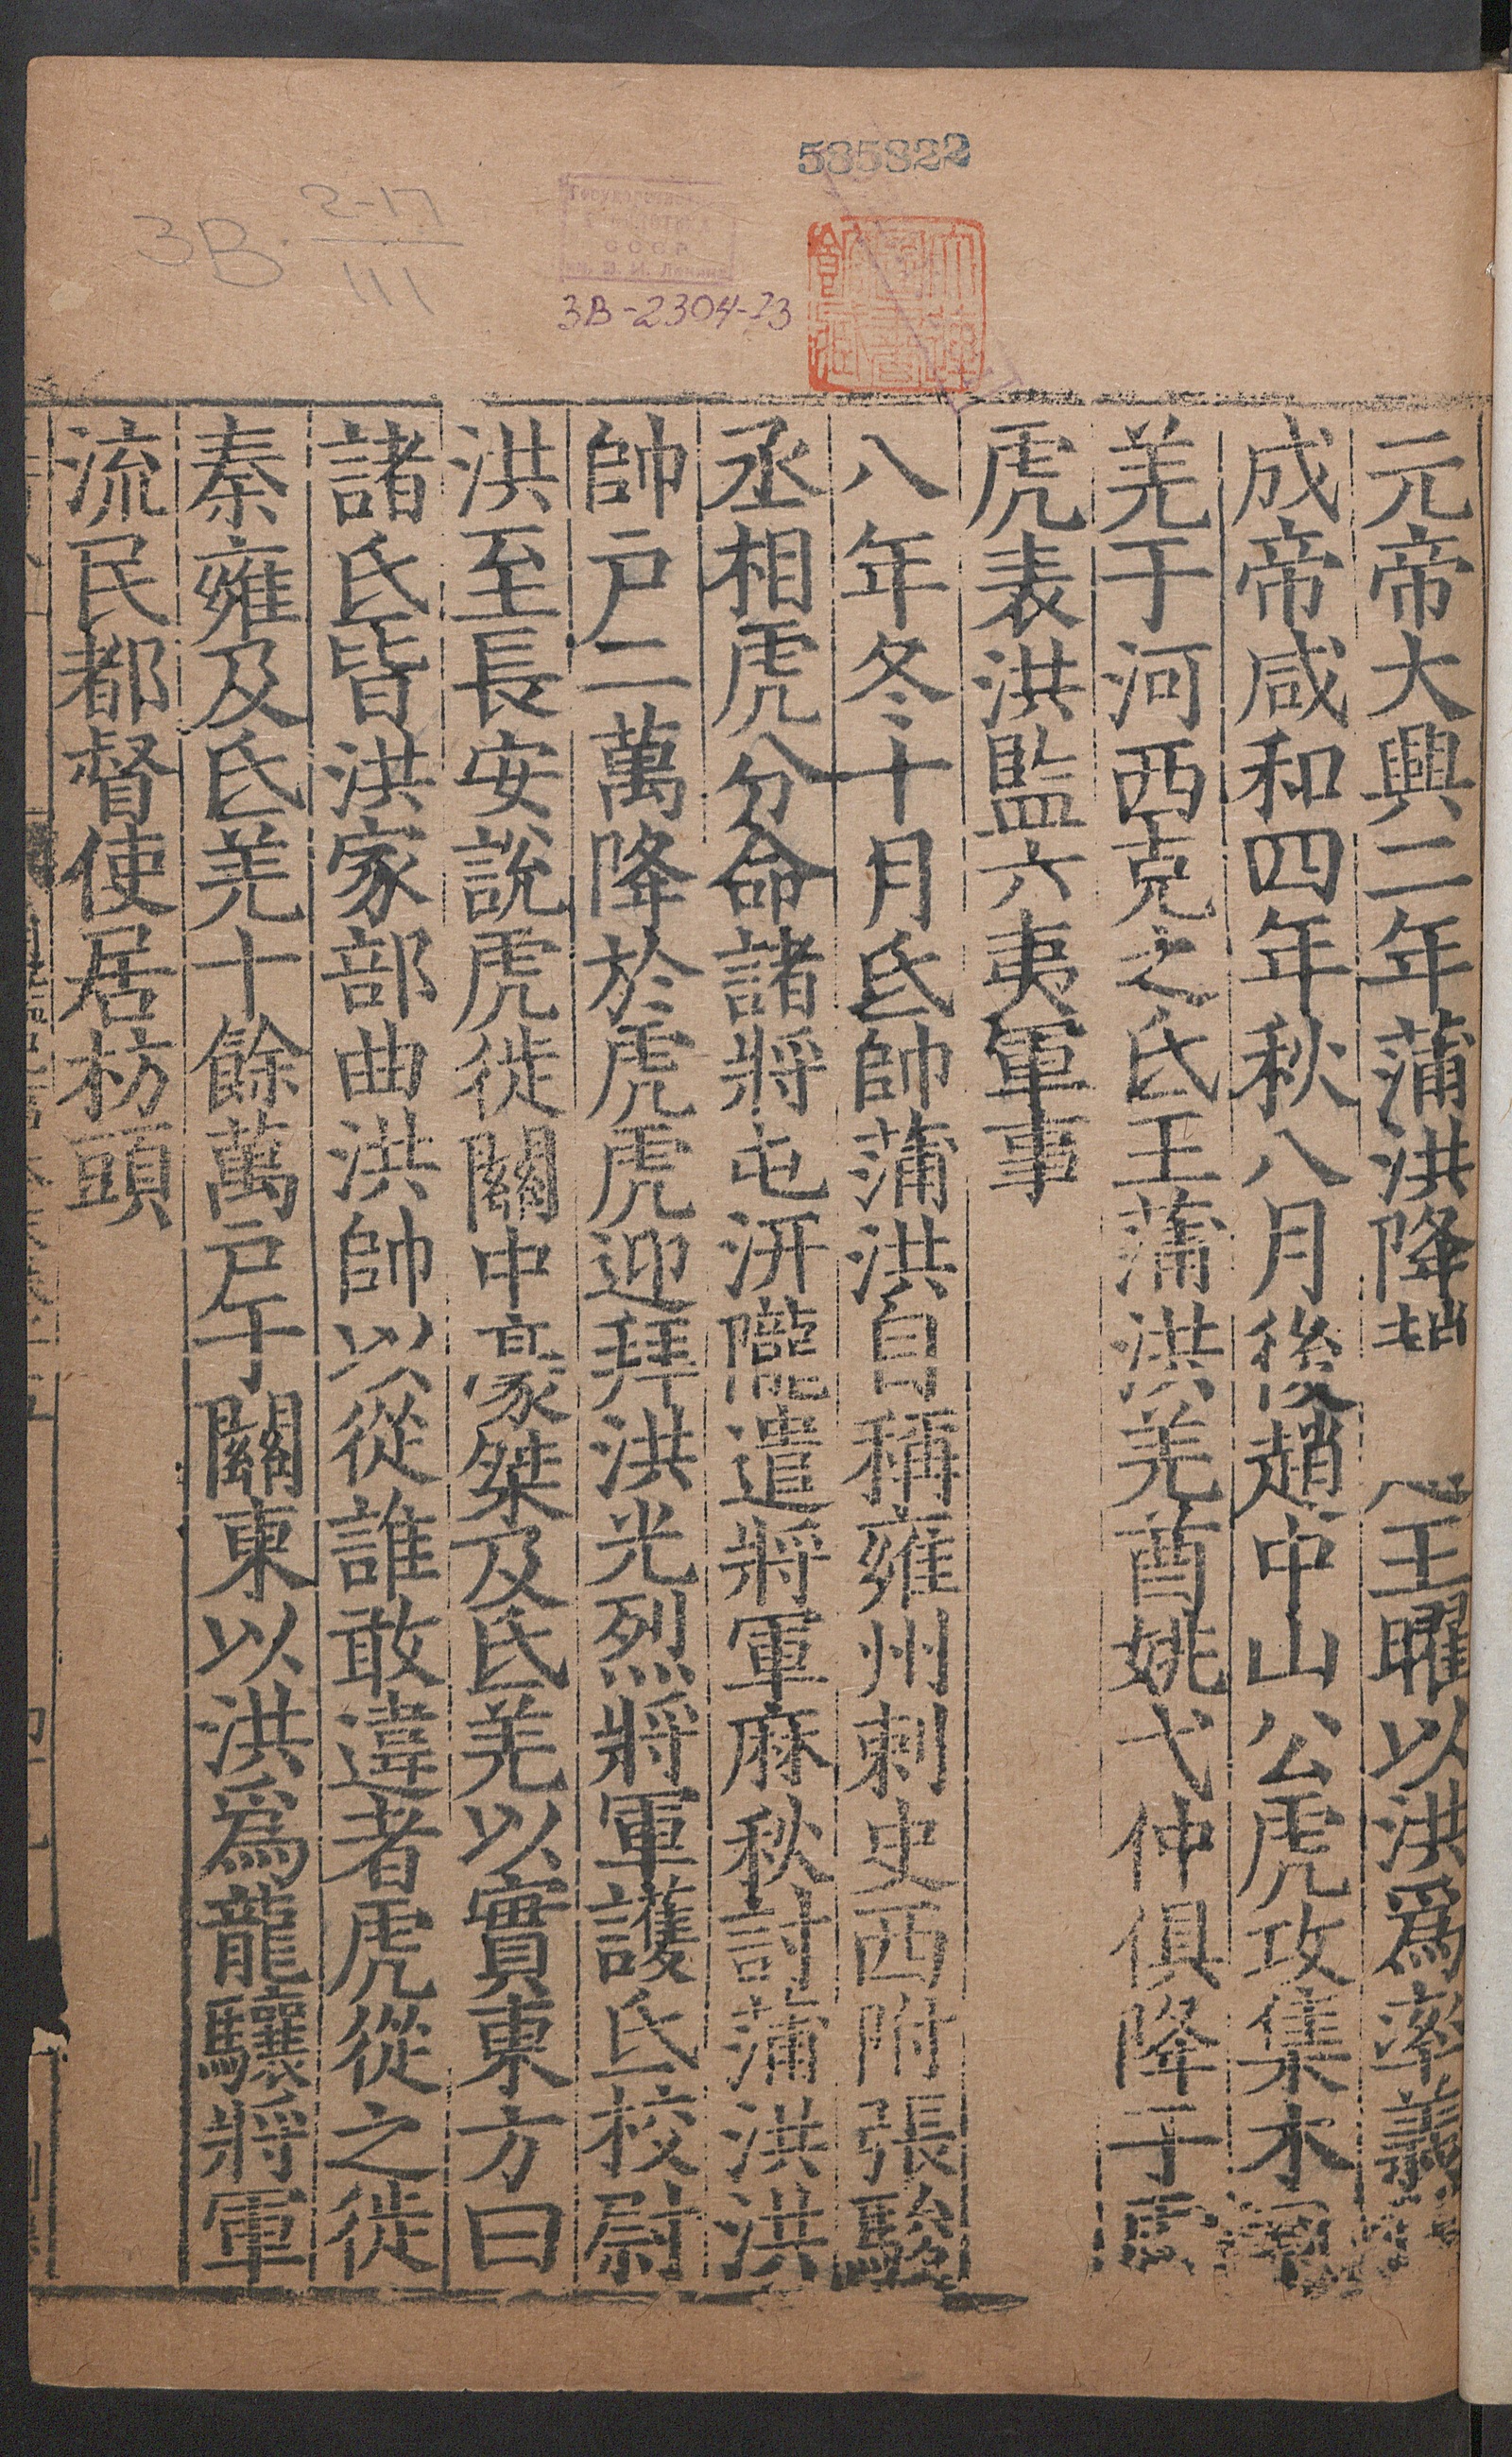 535322
2-17
3В· 111
Государствен
СССР
им. В. И. Ленина
3В-2304-23
元帝大興二年蒲洪降趙 王曜以洪爲率義
成帝咸和四年秋八月後趙中山公虎攻集木
羌于河西克之氐王蒲洪羌酋姚弋仲俱降于虎
虎表洪監六夷軍事
八年冬十月氐帥蒲洪自稱雍州刺史西附張駿
丞相虎分命諸將屯汧隴遣將軍麻秋討蒲洪洪
帥戸二萬降於虎虎迎拜洪光烈將軍護氐校尉
洪至長安說虎徙關中豪桀及氐羌以實東方曰
諸氐皆洪家部曲洪帥以從誰敢違者虎從之徙
秦雍及氐羌十餘萬戸于關東以洪爲龍驤將軍
流民都督使居枋頭